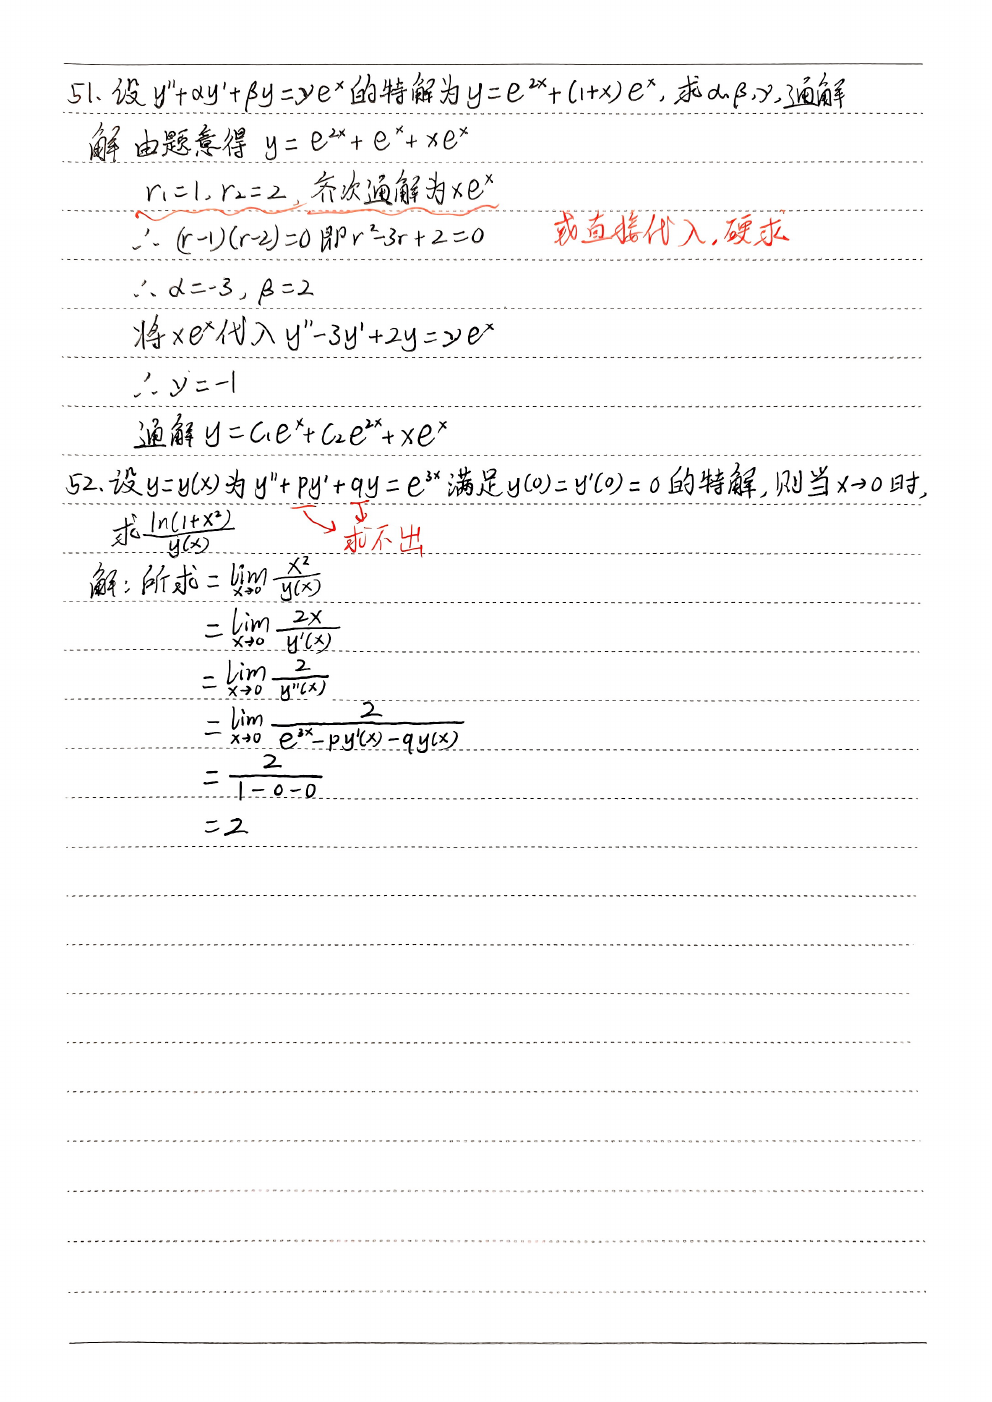 51. 设 y''+αy'+βy=γeˣ的特解为y=e²ˣ+(1+x)eˣ, 求α,β,γ,通解
解 由题意得 y=e²ˣ+eˣ+xeˣ
r₁=1, r₂=2, 齐次通解为xeˣ
∴ (r-1)(r-2)=0 即r²-3r+2=0 或直接代入,硬求
∴ α=-3, β=2
将xeˣ代入y''-3y'+2y=γeˣ
∴ γ=-1
通解y=C₁eˣ+C₂e²ˣ+xeˣ
52. 设y=y(x)为y''+py'+qy=e³ˣ满足y(0)=y'(0)=0的特解,则当x→0时,
求 ln(1+x²)/y(x) 求不出
解: 所求= lim x→0 x²/y(x)
= lim x→0 2x/y'(x)
= lim x→0 2/y''(x)
= lim x→0 2/(e³ˣ-py'(x)-qy(x))
= 2/(1-0-0)
=2